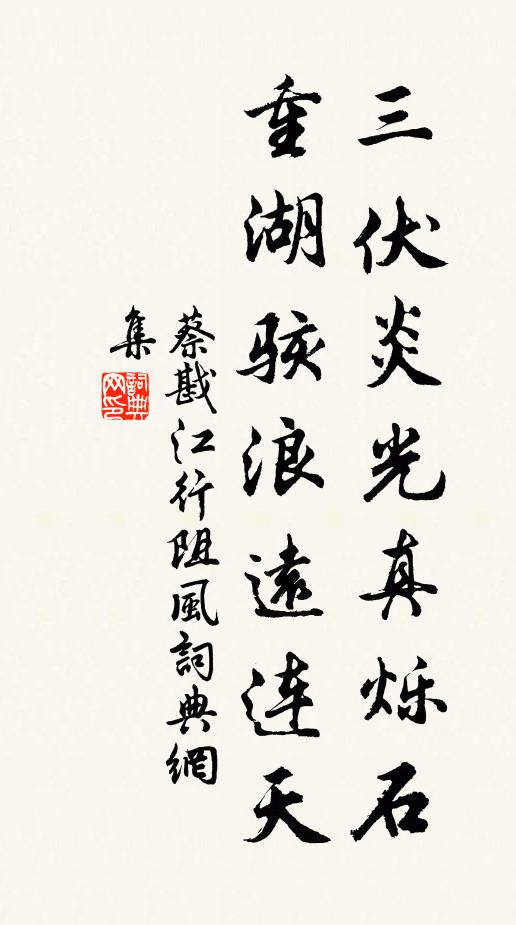 三伏炎光真烁石
重湖骇浪遠連天
蔡戡江行阻風詞典網
集
詞典
网印